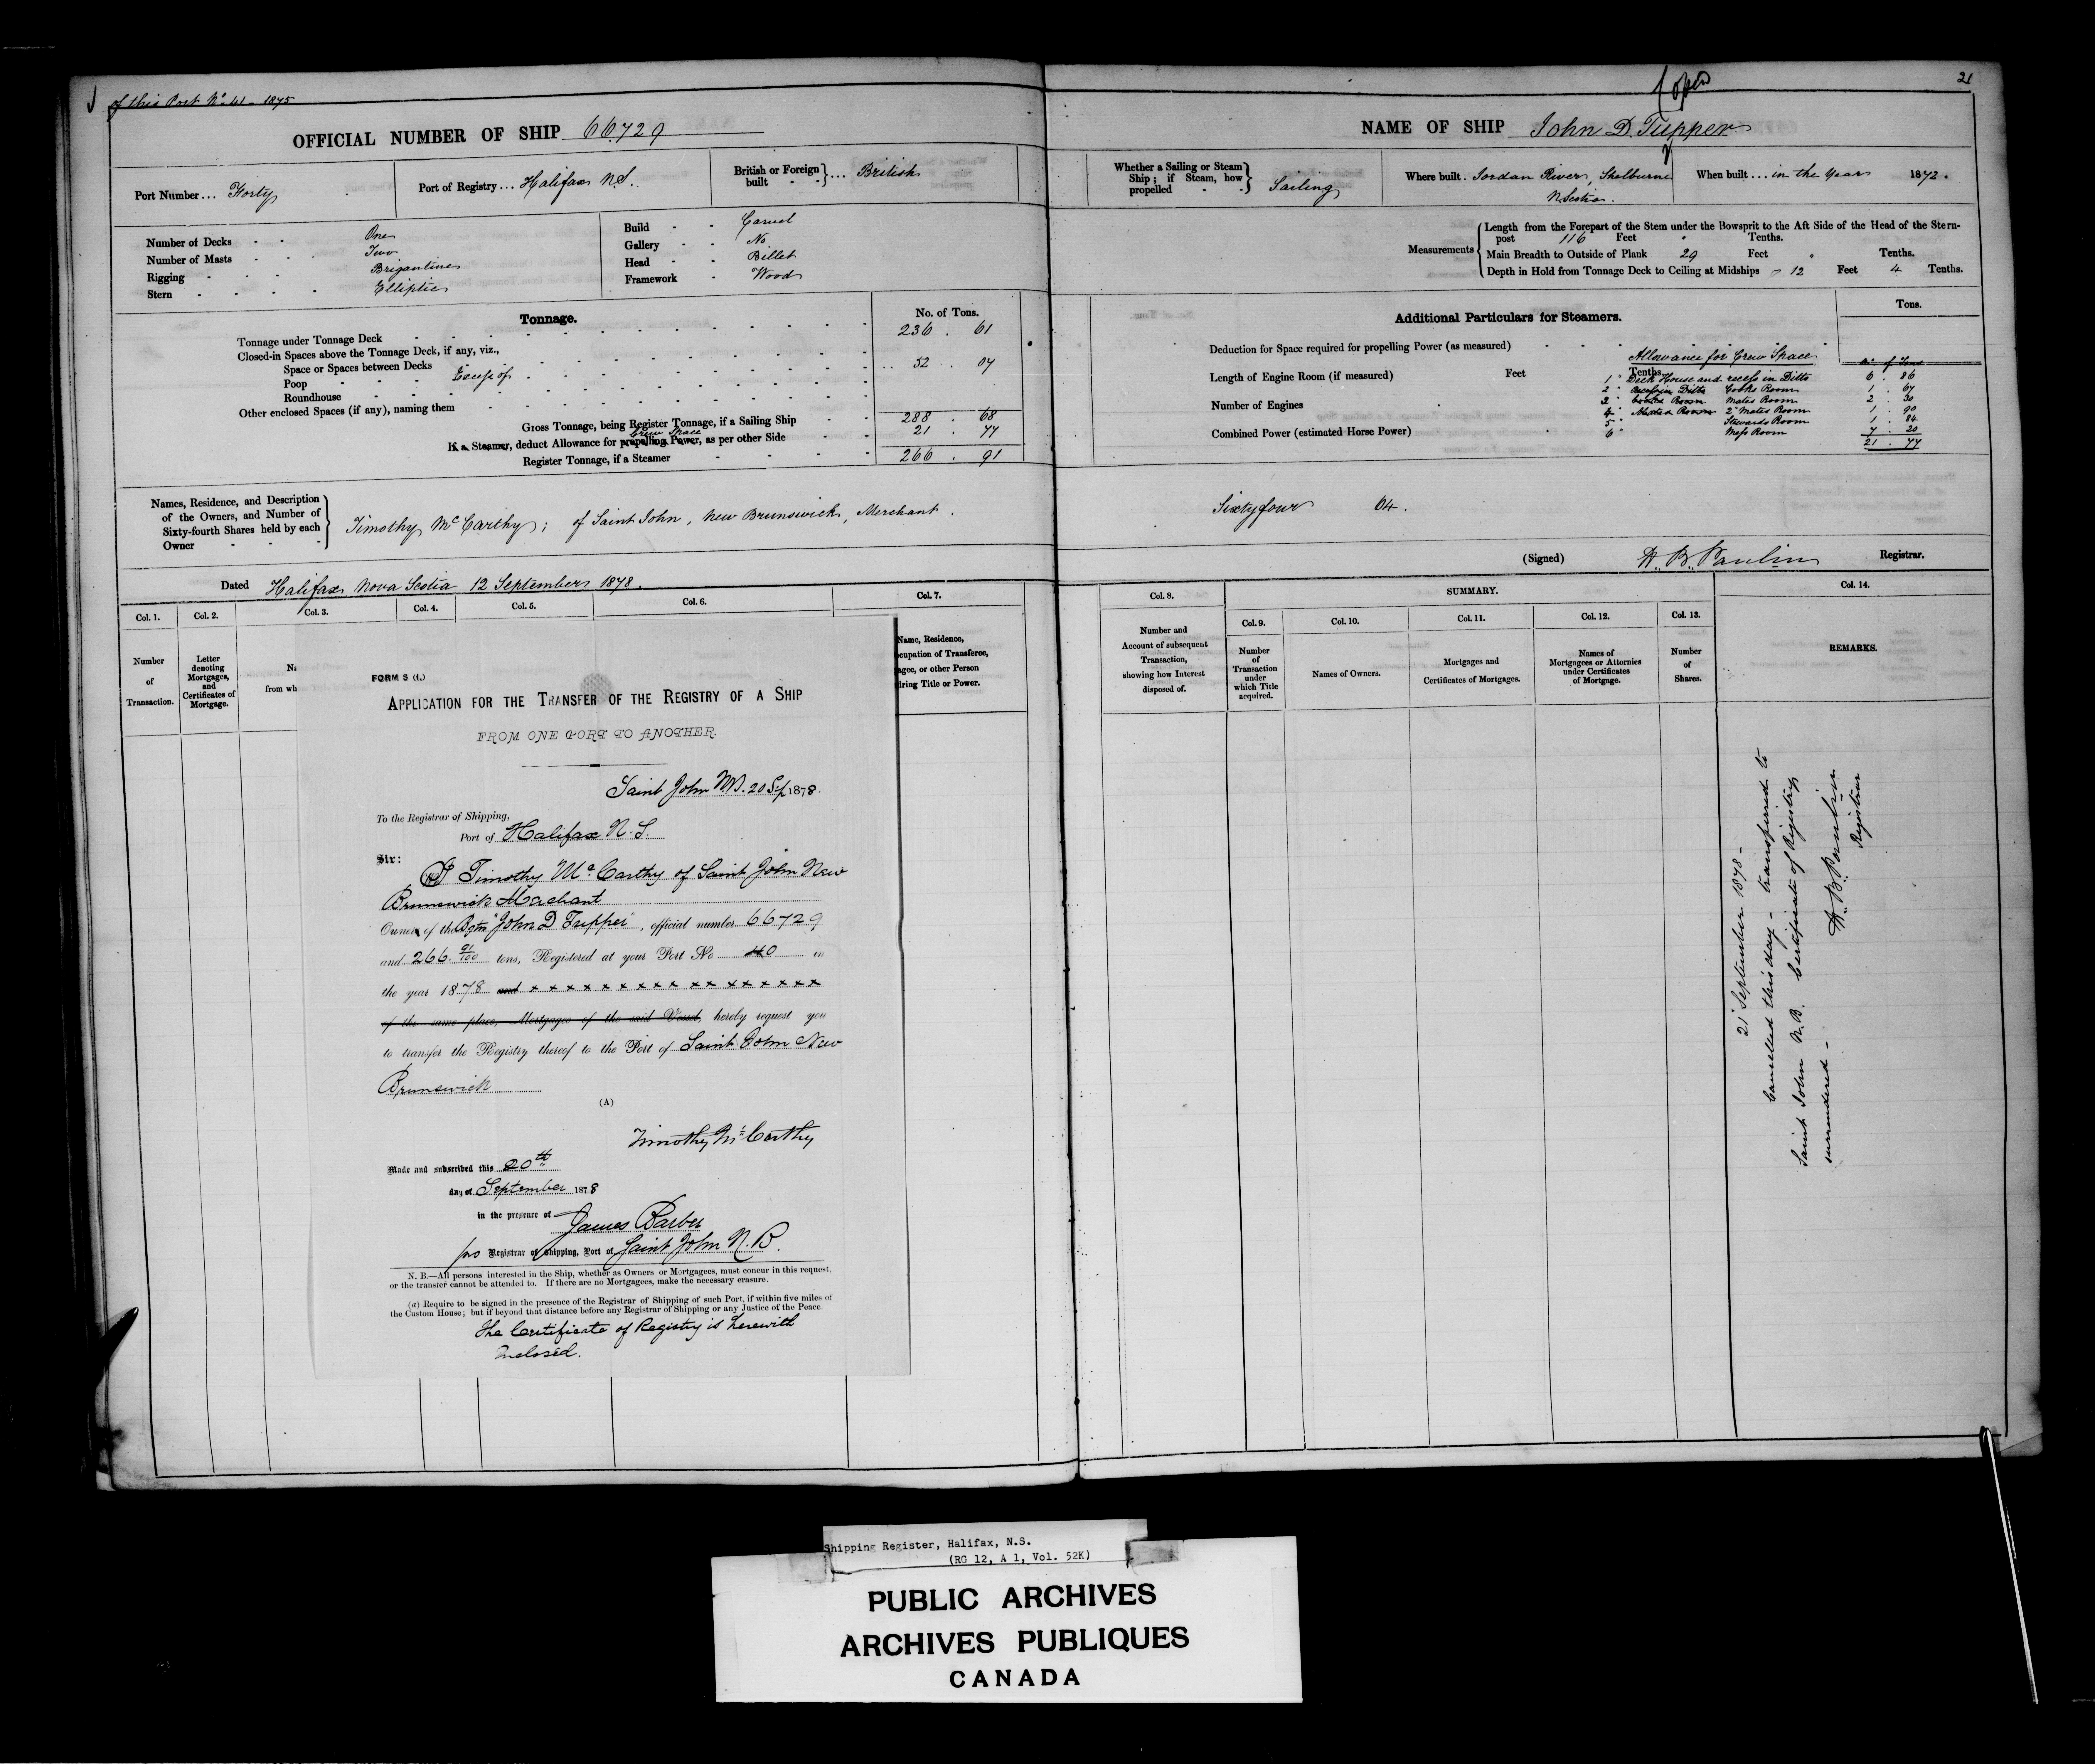 of this Port No 41 - 1875
OFFICIAL NUMBER OF SHIP 66.729
Port Number... Forty
Port of Registry... Halifax N.S.
British or Foreign built } ... British
Number of Decks - - One
Number of Masts - - - Two
Rigging - - - - Brigantine
Stern - - - - - Elliptic
Build - - Carvel
Gallery - - No
Head - - Billet
Framework - Wood
Tonnage.
No. of Tons.
Tonnage under Tonnage Deck 236 . 61
Closed-in Spaces above the Tonnage Deck, if any, viz.,
Space or Spaces between Decks 52 . 07
Poop Excess of
Roundhouse
Other enclosed Spaces (if any), naming them
Gross Tonnage, being Register Tonnage, if a Sailing Ship 288 . 68
Crew Space
If a Steamer, deduct Allowance for propelling Power, as per other Side 21 . 77
Register Tonnage, if a Steamer 266 . 91
Names, Residence, and Description
of the Owners, and Number of
Sixty-fourth Shares held by each
Owner
Timothy McCarthy; of Saint John, New Brunswick, Merchant.
Dated Halifax Nova Scotia 12 September 1878.
Col. 1. Col. 2. Col. 3. Col. 4. Col. 5. Col. 6. Col. 7.
Number
of
Transaction.
Letter
denoting
Mortgages,
and
Certificates of
Mortgage.
from wh
Name, Residence,
cupation of Transferee,
agee, or other Person
iring Title or Power.
FORM S (f.)
APPLICATION FOR THE TRANSFER OF THE REGISTRY OF A SHIP
FROM ONE PORT TO ANOTHER.
Saint John N.B. 20 Sep 1878.
To the Registrar of Shipping,
Port of Halifax N.S.
Sir:
I Timothy McCarthy of Saint John New
Brunswick Merchant
Owner of the Bgtn "John D Tupper", official number 66729
and 266 91/100 tons, Registered at your Port No 40 in
the year 1878 and x x x x x x x x x x x x x x x x x x
of the same place, Mortgagee of the said Vessel, hereby request you
to transfer the Registry thereof to the Port of Saint John New
Brunswick
(A)
Timothy McCarthy
Made and subscribed this 20th
day of September 1878
in the presence of
James Barber
pro Registrar of Shipping, Port of Saint John N.B.
N. B.—All persons interested in the Ship, whether as Owners or Mortgagees, must concur in this request,
or the transfer cannot be attended to. If there are no Mortgagees, make the necessary erasure.
(a) Require to be signed in the presence of the Registrar of Shipping of such Port, if within five miles of
the Custom House; but if beyond that distance before any Registrar of Shipping or any Justice of the Peace.
The Certificate of Registry is herewith
Inclosed.
21
NAME OF SHIP John D. Tupper
Whether a Sailing or Steam
Ship; if Steam, how
propelled
Sailing
Where built . Jordan River, Shelburne
N. Scotia.
When built... in the Year 1872.
Measurements
Length from the Forepart of the Stem under the Bowsprit to the Aft Side of the Head of the Stern-
post 116 Feet " Tenths.
Main Breadth to Outside of Plank 29 Feet " Tenths.
Depth in Hold from Tonnage Deck to Ceiling at Midships 12 Feet 4 Tenths.
Additional Particulars for Steamers.
Tons.
Deduction for Space required for propelling Power (as measured)
Allowance for Crew Space No of Tons
Length of Engine Room (if measured) Feet Tenths.
1 Deck House and recess in Ditto 6 . 86
2 Cooks Room 1 . 67
Number of Engines
3 Mates Room 2 . 30
4 2d Mates Room 1 . 90
5 Stewards Room 1 . 84
Combined Power (estimated Horse Power)
6 Mess Room 7 . 20
21 . 77
Sixty four 64.
(Signed) H. B. Paulin Registrar.
Col. 8.
Number and
Account of subsequent
Transaction,
showing how Interest
disposed of.
SUMMARY.
Col. 9.
Number
of
Transaction
under
which Title
acquired.
Col. 10.
Names of Owners.
Col. 11.
Mortgages and
Certificates of Mortgages.
Col. 12.
Names of
Mortgagees or Attornies
under Certificates
of Mortgage.
Col. 13.
Number
of
Shares.
Col. 14.
REMARKS.
21 September 1878 -
Cancelled this day - transferred to
Saint John N.B. Certificate of Registry
surrendered -
H. B. Paulin
Registrar
Shipping Register, Halifax, N.S.
(RG 12, A 1, Vol. 52K)
PUBLIC ARCHIVES
ARCHIVES PUBLIQUES
CANADA